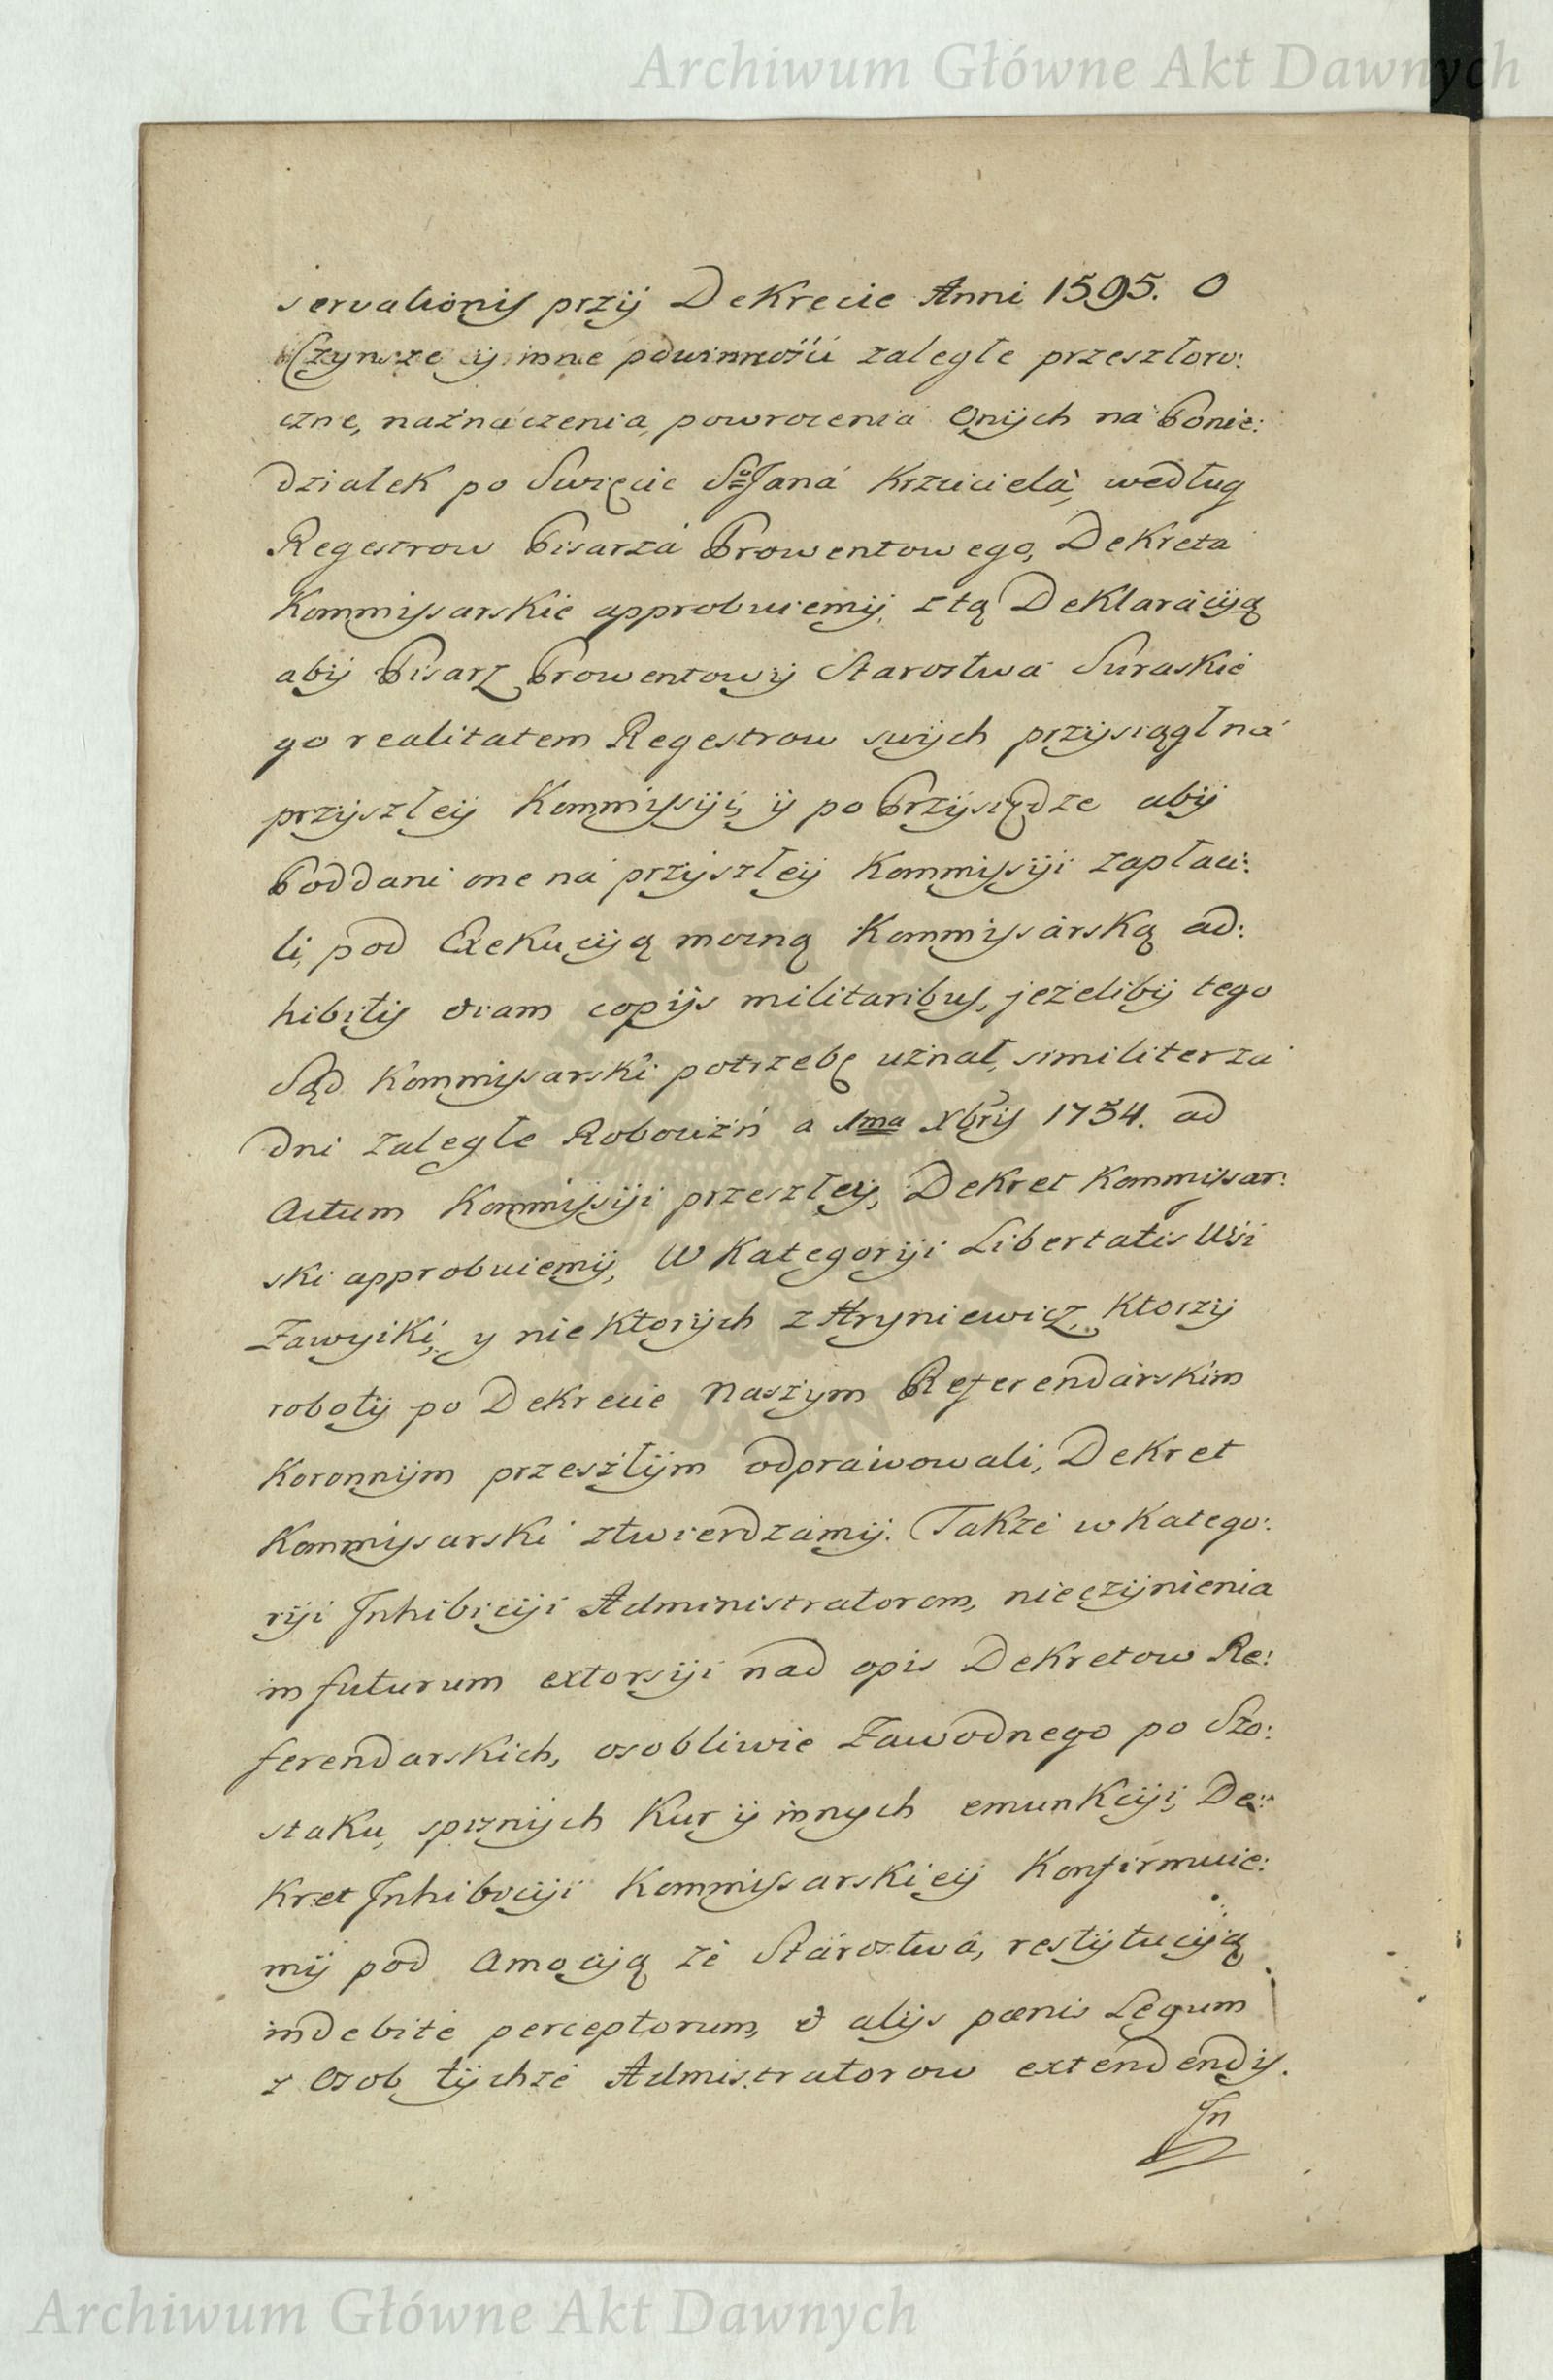 Archiwum Główne Akt Dawnych
servationis przÿ Dekrecie Anni 1595. O
Czynsze ÿ inne powinności zaległe przeszłoro:
czne, náznáczenia, powrocenia Onÿch ná Ponie:
działek po Swięcie So Janá Krzciciela, według
Regestrow Pisarzá Prowentowego, Dekreta
Kommissarskie approbuiemÿ, z tą Deklaracÿą
abÿ Pisarz Prowentowÿ Starostwa Suraskie
go realitatem Regestrow swÿch przÿsiągł ná
przÿszłeÿ Kommissÿi, ÿ po Przÿsiędze abÿ
Poddani one ná przÿszłeÿ Kommissÿi zapłaci:
li, pod Exekucÿą mocną Kommissárską ad:
hibitis etiam copÿs militaribus, jeżelibÿ tego
Sąd Kommissarski potrzebę uznał, similiter zá
dni zaległe Robocizń a 1ma Xbris 1754. ad
Actum Kommissÿi przeszłeÿ, Dekret Kommissar:
ski approbuiemÿ, W Kategorÿi Libertatis Wsi
Zawyiki, y niektorÿch z Hryniewicz, Ktorzÿ
robotÿ po Dekrecie Naszym Referendárskim
Koronnÿm przeszłÿm odprawowali, Dekret
Kommissarski ztwierdzámÿ. Także w Katego:
rÿi Inhibicÿi Administratorom, nieczÿnienia
in futurum extorsÿi nad opis Dekretow Re:
ferendarskich, osobliwie Zawodnego po Szo:
staku, spiznÿch Kur ÿ innych emunkcÿi, De:
kret Inhibicÿi Kommissarskieÿ Konfirmuie:
mÿ pod Amocÿą ze Stárostwá, restÿtucÿą
indebite perceptorum, & alÿs pœnis Legum
z Osob tÿchże Admistratorow extendendis.
In
Archiwum Główne Akt Dawnych